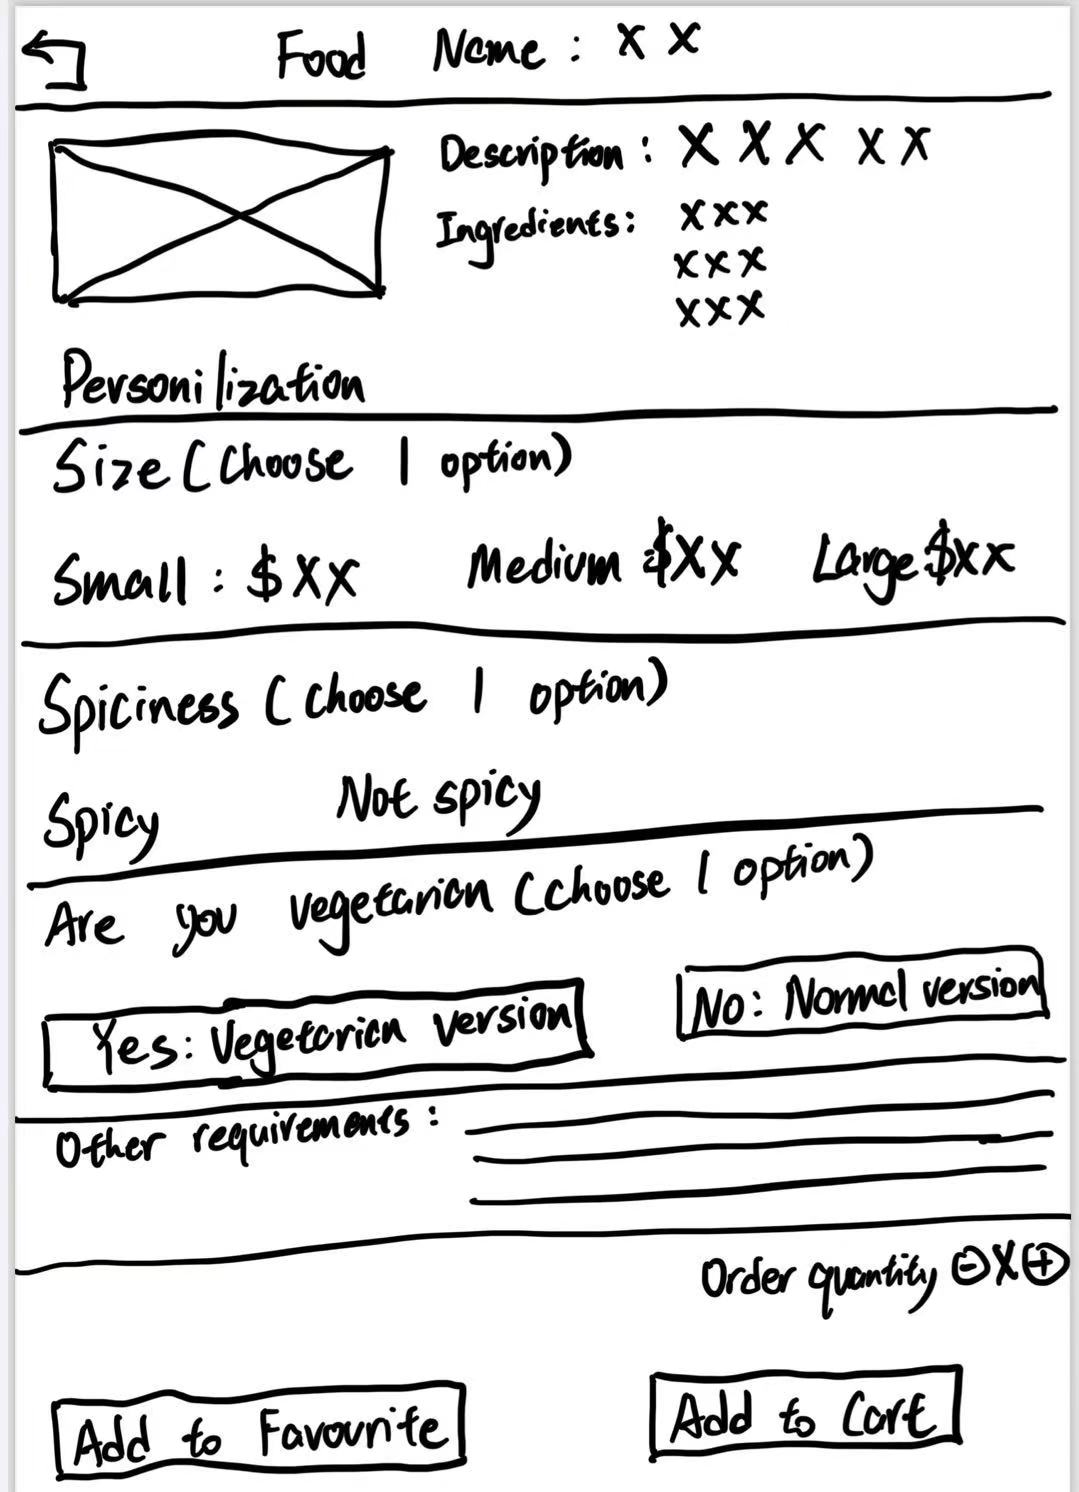 Food Name : X X
Description : X X X X X
Ingredients: XXX
XXX
XXX
Personilization
Size (Choose 1 option)
Small : $ XX Medium $XX Large $XX
Spiciness (choose 1 option)
Spicy Not spicy
Are you vegetarian (choose 1 option)
Yes: Vegetarian version No: Normal version
Other requirements :
Order quantity - X +
Add to Favourite Add to Cart